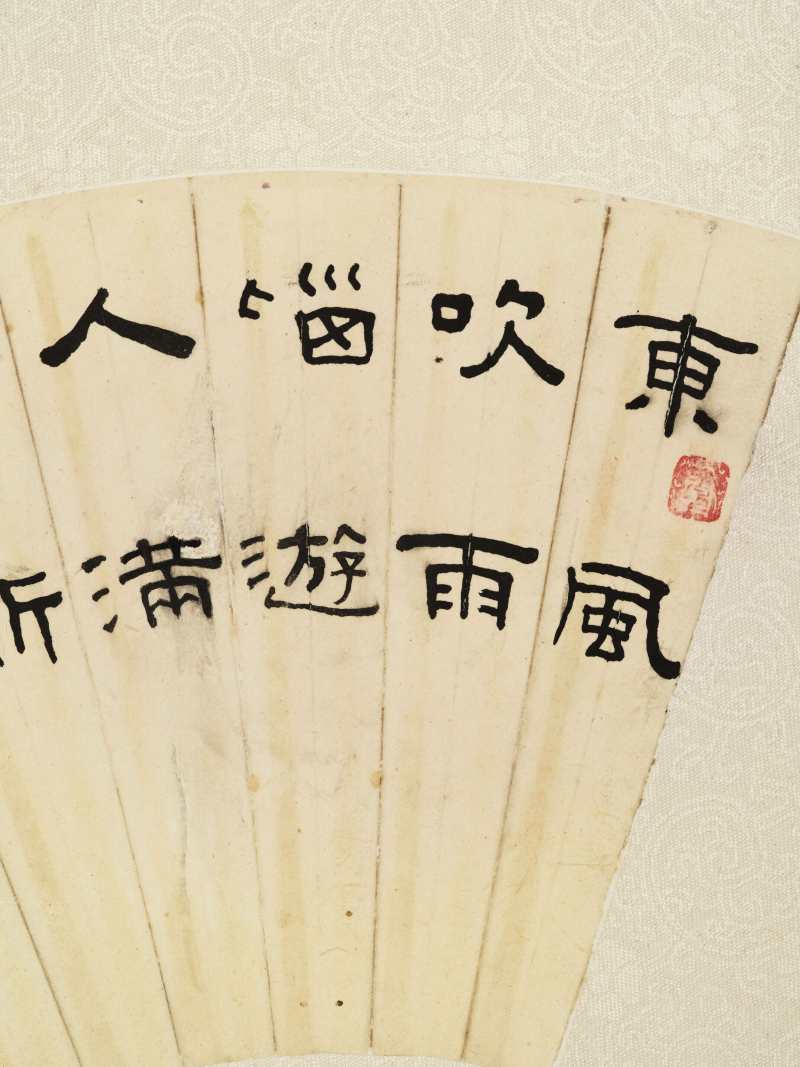 東風
吹雨
惱遊
人滿